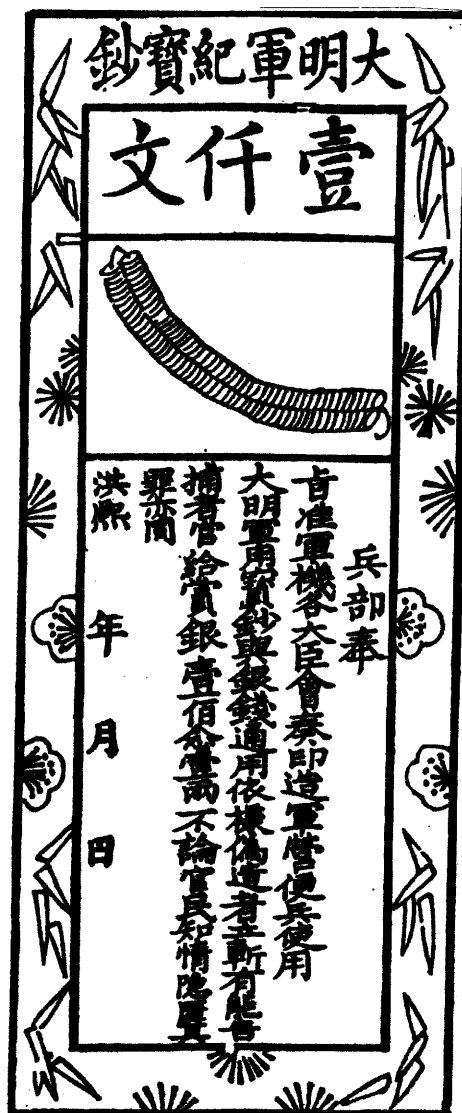 大明軍紀寶鈔
壹仟文
兵部奉
旨准軍機各大臣會奏印造軍營便兵使用
大明軍用寶鈔與銀錢通用依樣偽造者立斬有能告
捕者官給賞銀壹佰兩不論官民知情隱匿其
罪亦同
洪熙 年 月 日